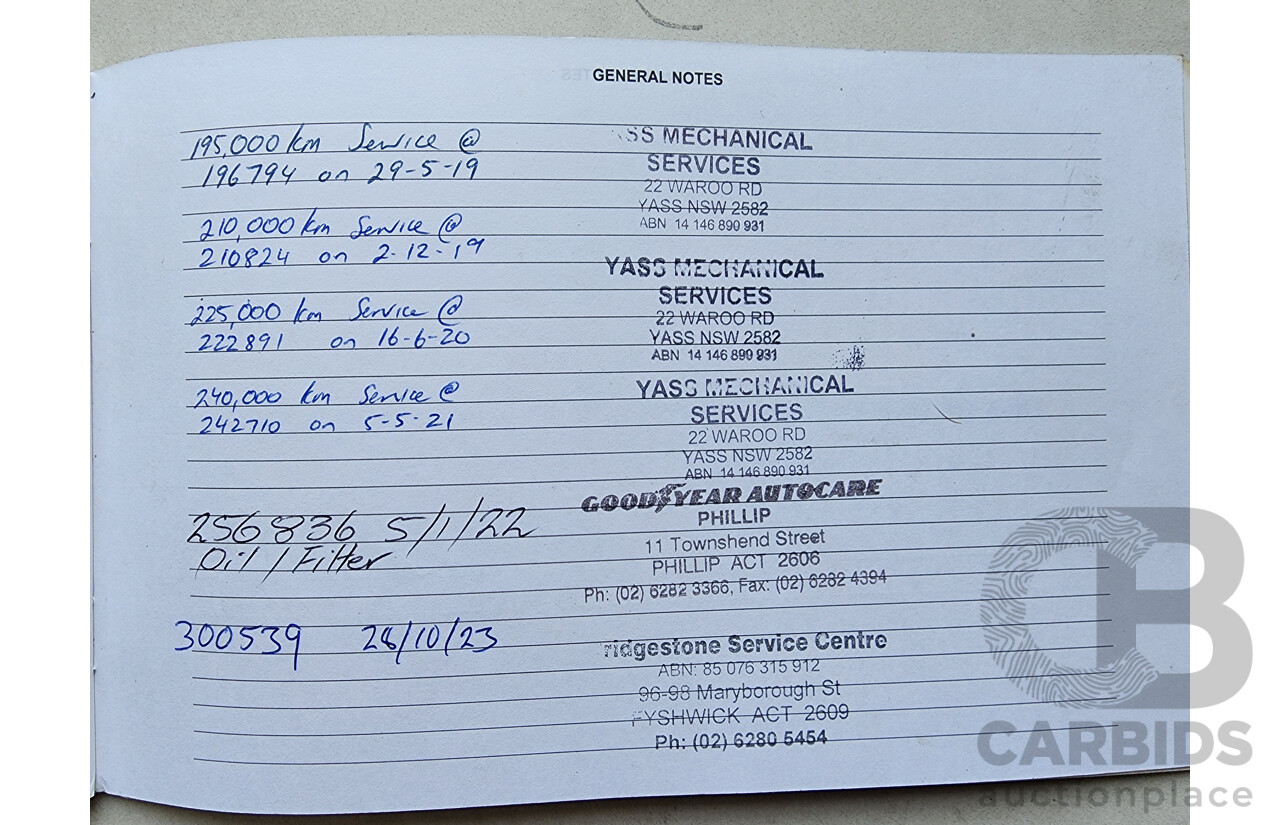 GENERAL NOTES
195,000 km Service @
196794 on 29-5-19
SS MECHANICAL
SERVICES
22 WAROO RD
YASS NSW 2582
ABN 14 146 890 931
210,000 km Service @
210824 on 2-12-19
YASS MECHANICAL
SERVICES
22 WAROO RD
YASS NSW 2582
ABN 14 146 890 931
225,000 km Service @
222891 on 16-6-20
240,000 km Service @
242710 on 5-5-21
YASS MECHANICAL
SERVICES
22 WAROO RD
YASS NSW 2582
ABN 14 146 890 931
256836 5/1/22
Oil / Filter
GOODYEAR AUTOCARE
PHILLIP
11 Townshend Street
PHILLIP ACT 2606
Ph: (02) 6282 3366, Fax: (02) 6282 4394
300539
ridgestone Service Centre
ABN: 85 076 315 912
96-98 Maryborough St
FYSHWICK ACT 2609
Ph: (02) 6280 5454
CB
CARBIDS
auctionplace